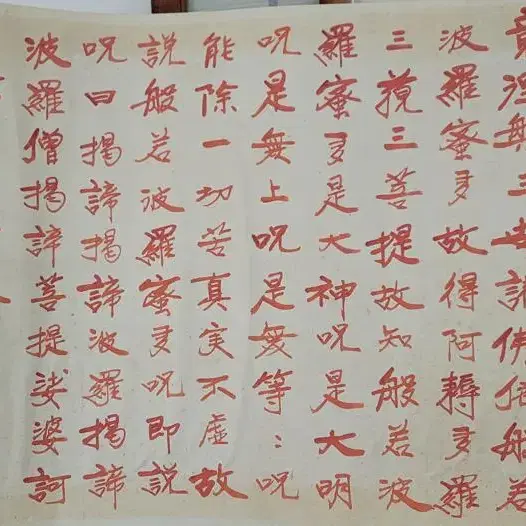 三世諸佛依般若
波羅蜜多故得阿耨多羅
三藐三菩提故知般若波
羅蜜多是大神呪是大明
呪是無上呪是無等〻呪
能除一切苦真実不虛故
說般若波羅蜜多呪即說
呪曰揭諦揭諦波羅揭諦
波羅僧揭諦菩提娑婆訶